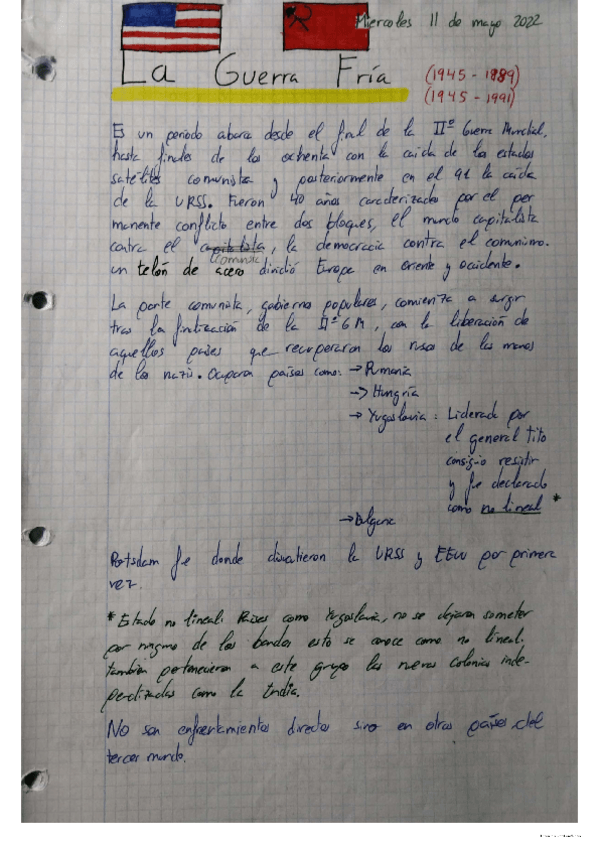 Miercoles 11 de mayo 2022
La Guerra Fría (1945 - 1989)
(1945 - 1991)
Es un periodo abarca desde el final de la IIº Guerra Mundial,
hasta finales de los ochenta con la caida de los estados
satélites comunista y posteriormente en el 91 la caida
de la URSS. Fueron 40 años caracterizados por el per
manente conflicto entre dos bloques, el mundo capitalista
contra el capitalista, la democracia contra el comunismo.
comunista
un telón de acero dividió Europa en oriente y occidente.
La parte comunista, gobierno populares, comienza a surgir
tras la finalización de la IIº G M, con la liberación de
aquellos países que recuperaron los rusos de las manos
de los nazis. Ocuparon países como: → Rumania
→ Hungría
→ Yugoslavia: Liderada por
el general Tito
consiguio resistir
y fue declarado
como no lineal *
→ Bulgaria
Potsdam fue donde discutieron la URSS y EEUU por primera
vez.
* Estado no lineal: Países como Yugoslavia, no se dejaron someter
por ninguno de los bandos esto se conoce como no lineal.
también pertenecieron a este grupo las nuevas colonias inde-
pendizadas como la India.
No son enfrentamientos directos sino en otros países del
tercer mundo.